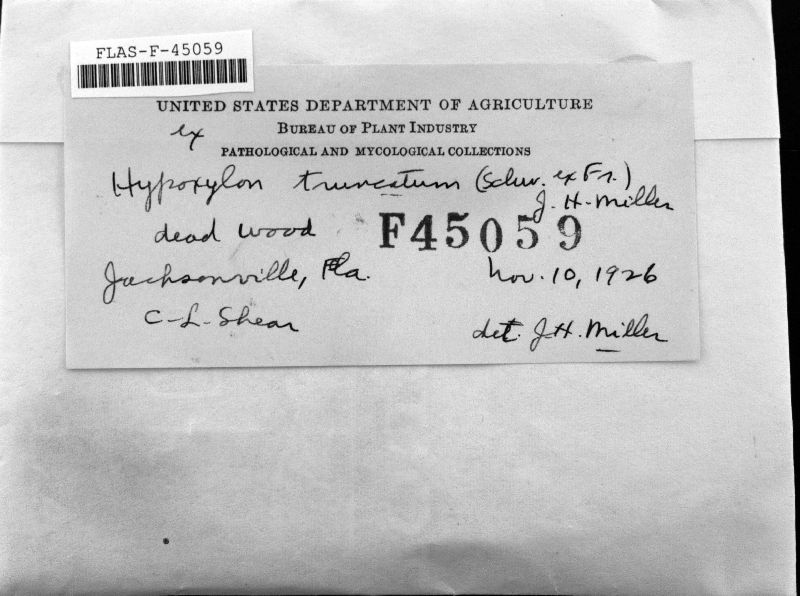 FLAS-F-45059
UNITED STATES DEPARTMENT OF AGRICULTURE
ex
BUREAU OF PLANT INDUSTRY
PATHOLOGICAL AND MYCOLOGICAL COLLECTIONS
Hypoxylon truncatum (Schw. ex Fr.)
J. H. Miller
dead wood
F45059
Jacksonville, Fla.
Nov. 10, 1926
C-L-Shear
det. J.H. Miller